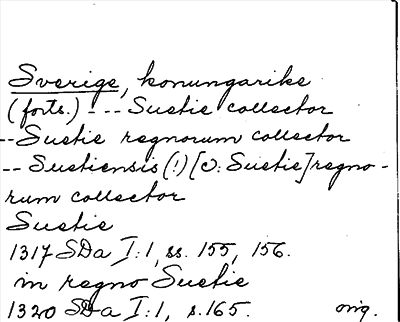 Sverige, konungarike
(forts.) - -- Suetie collector
-- Suetie regnorum collector
-- Suetiensis(!) [ɔ: Suetie] regno-
rum collector
Suetie
1317 SDa I:1, ss. 155, 156.
in regno Suetie
1320 SDa I:1, s. 165. orig.